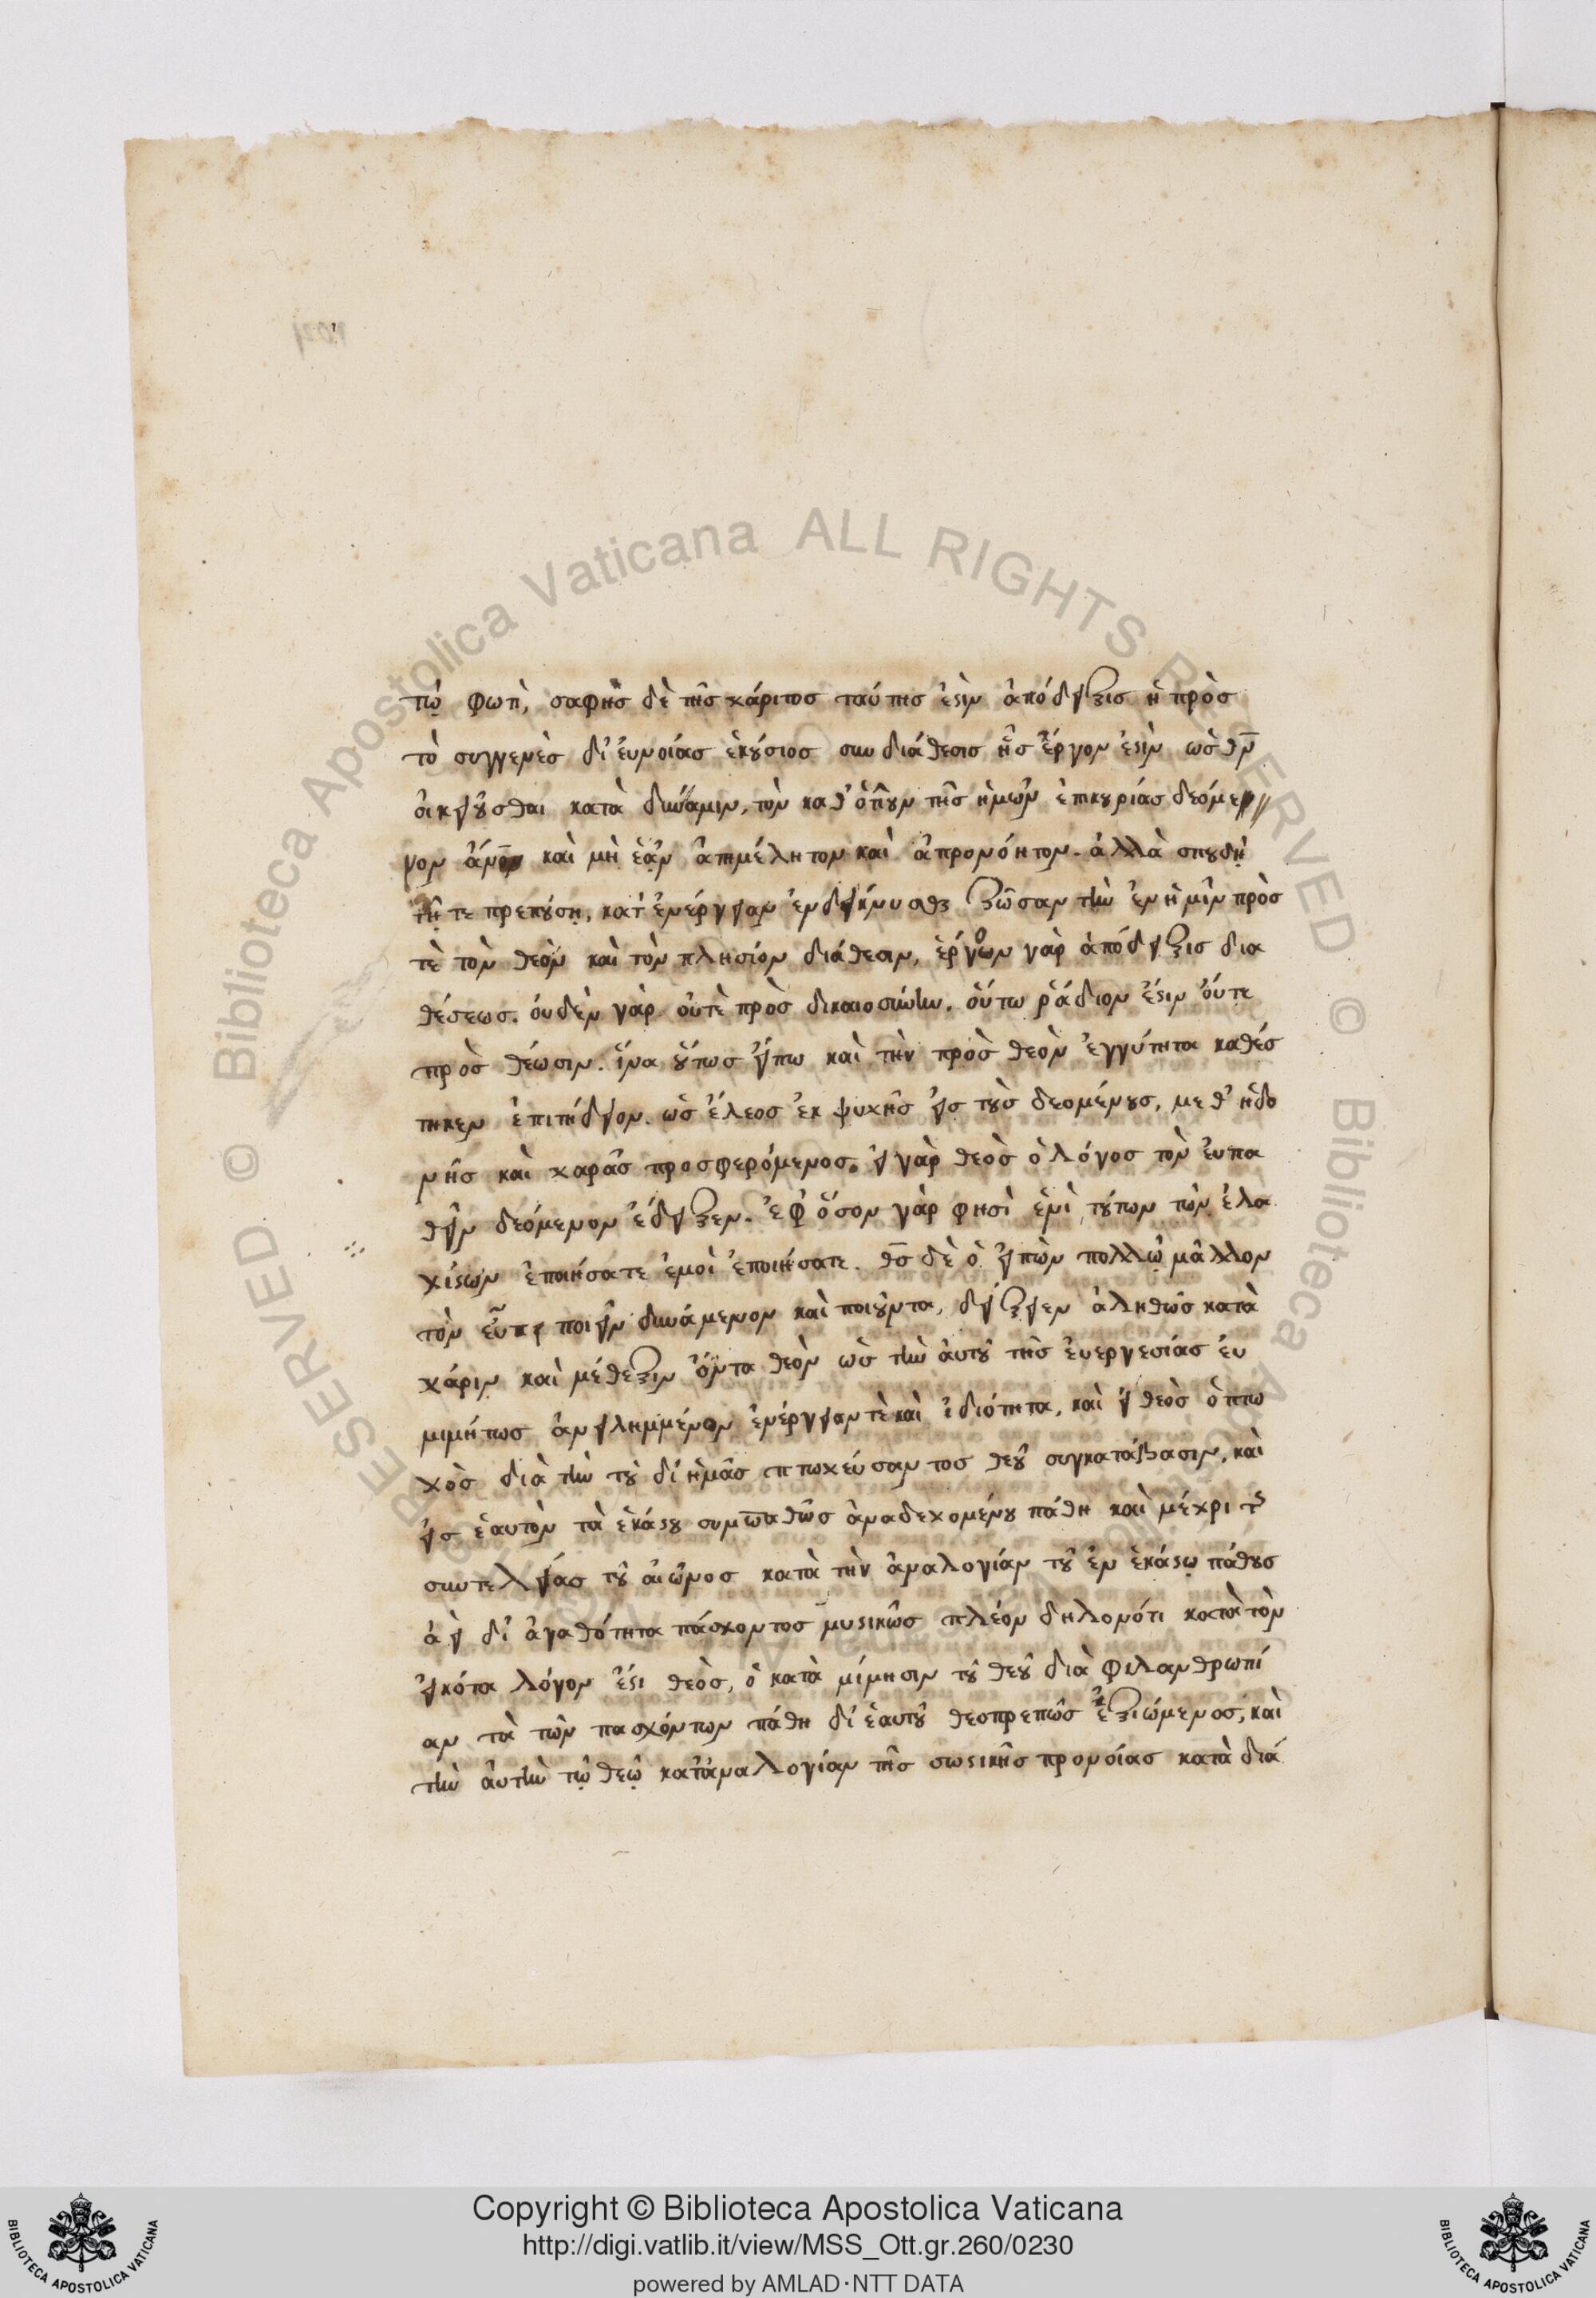 τῷ φωτὶ, σαφὴς δὲ τῆς χάριτος ταύτης ἐστὶν ἀπόδειξις ἡ πρὸς
τὸ συγγενὲς δι' ἐυνοίας ἑκούσιος συνδιάθεσις ἧς ἔργον ἐστὶν ὡς θν̅
οἰκειοῦσθαι κατὰ δύναμιν, τὸν καθ' ὁτιοῦν τῆς ἡμῶν ἐπικουρίας δεόμε
νον ἄνον καὶ μὴ ἐᾷν ἀτημέλητον καὶ ἀπρονόητον. ἀλλὰ σπουδῇ
τῇ τε πρεπούσῃ, κατ' ἐνέργειαν ἐνδείκνυσθαι ζῶσαν τὴν ἐν ἡμῖν πρὸς
τὲ τὸν θεὸν καὶ τὸν πλησίον διάθεσιν, ἔργον γὰρ ἀπόδειξις δια
θέσεως. ὀυδὲν γὰρ ὀυτὲ πρὸς δικαιοσύνην. ὅυτω ῥάδιον ἔστιν ὄυτε
πρὸς θέωσιν. ἵνα ὅυτως ἔιπω καὶ τὴν πρὸς θεὸν ἐγγύτητα καθέσ
τηκεν ἐπιτήδειον. ὡς ἔλεος ἐκ ψυχῆς εἰς τοὺς δεομένους, μεθ' ἡδο
νῆς καὶ χαρᾶς προσφερόμενος. εἰ γὰρ θεὸς ὁ λόγος τὸν ἐυπα
θεῖν δεόμενον ἔδειξεν. ἐφ' ὅσον γὰρ φησὶ ἑνὶ τούτων τῶν ἐλα
χίστων ἐποιήσατε ἐμοὶ ἐποιήσατε. θς̅ δὲ ὁ εἰπὼν πολλῷ μᾶλλον
τὸν εὖ ποιεῖν δυνάμενον καὶ ποιοῦντα, δείξειεν ἀληθῶς κατὰ
χάριν καὶ μέθεξιν ὄντα θεὸν ὡς τὴν ἀυτοῦ τῆς ἐυεργεσίας ἐυ
μιμήτως ἀνειλημμένον ἐνέργειαν τὲ καὶ ἰδιότητα, καὶ εἰ θεὸς ὁ πτω
χὸς διὰ τὴν τοῦ δι' ἡμᾶς πτωχεύσαντος θεοῦ συγκατάβασιν, καὶ
εἰς ἑαυτὸν τὰ ἑκάστου συμπαθῶς ἀναδεχομένου πάθη καὶ μέχρι τῆς
συντελείας τοῦ ἀιῶνος κατὰ τὴν ἀναλογίαν τοῦ ἐν ἑκάστῳ πάθους
ἀεὶ δι' ἀγαθότητα πάσχοντος μυστικῶς πλέον δηλονότι κατὰ τὸν
εἰκότα λόγον ἔσται θεὸς, ὁ κατὰ μίμησιν τοῦ θεοῦ διὰ φιλανθρωπί
αν τὰ τῶν πασχόντων πάθη δι' ἑαυτοῦ θεοπρεπῶς ἐξιώμενος, καὶ
τὴν ἀυτὴν τῷ θεῷ κατ' ἀναλογίαν τῆς σωστικῆς προνοίας κατὰ διά
Copyright © Biblioteca Apostolica Vaticana
http://digi.vatlib.it/view/MSS_Ott.gr.260/0230
powered by AMLAD·NTT DATA